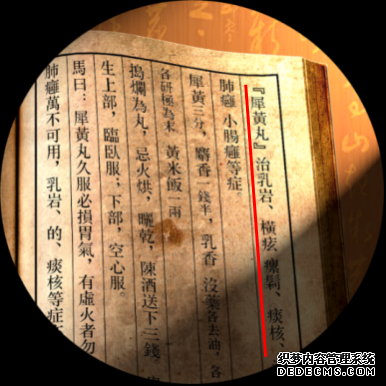 『犀黃丸』治乳岩、橫痃 瘰癧、痰核、
肺癰 小腸癰等症。
犀黃三分，麝香一錢半，乳香 沒藥各去油，各
各研極為末 黃米飯一兩
搗爛為丸，忌火烘，曬乾，陳酒送下三錢。
生上部，臨臥服；下部，空心服。
馬曰：犀黃丸久服必損胃氣，有虛火者勿
肺癰萬不可用，乳岩、的、痰核等症
织梦内容管理系统
DEDECMS.COM